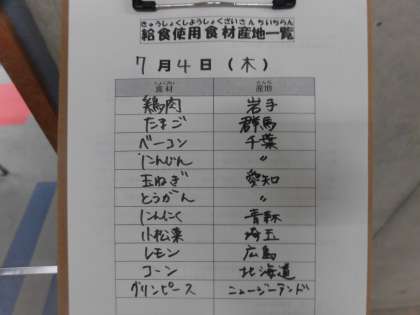 きゅうしょくしようしょくざいさんちいちらん
給食使用食材産地一覧
7月4日(木)
しょくざい さんち
食材 産地
鶏肉 岩手
たまご 群馬
ベーコン 千葉
にんじん 〃
玉ねぎ 愛知
とうがん 〃
にんにく 青森
小松菜 埼玉
レモン 広島
コーン 北海道
グリンピース ニュージーランド